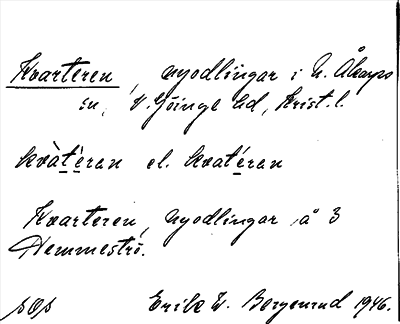 Kvarteren, nyodlingar i N. Åkarps
sn, V. Göinge hd, Krist. l.
kvàt́eran el. kvat́eran
Kvarteren, nyodlingar å 3
Hemmeströ.
Erik W. Bergenrud 1946.